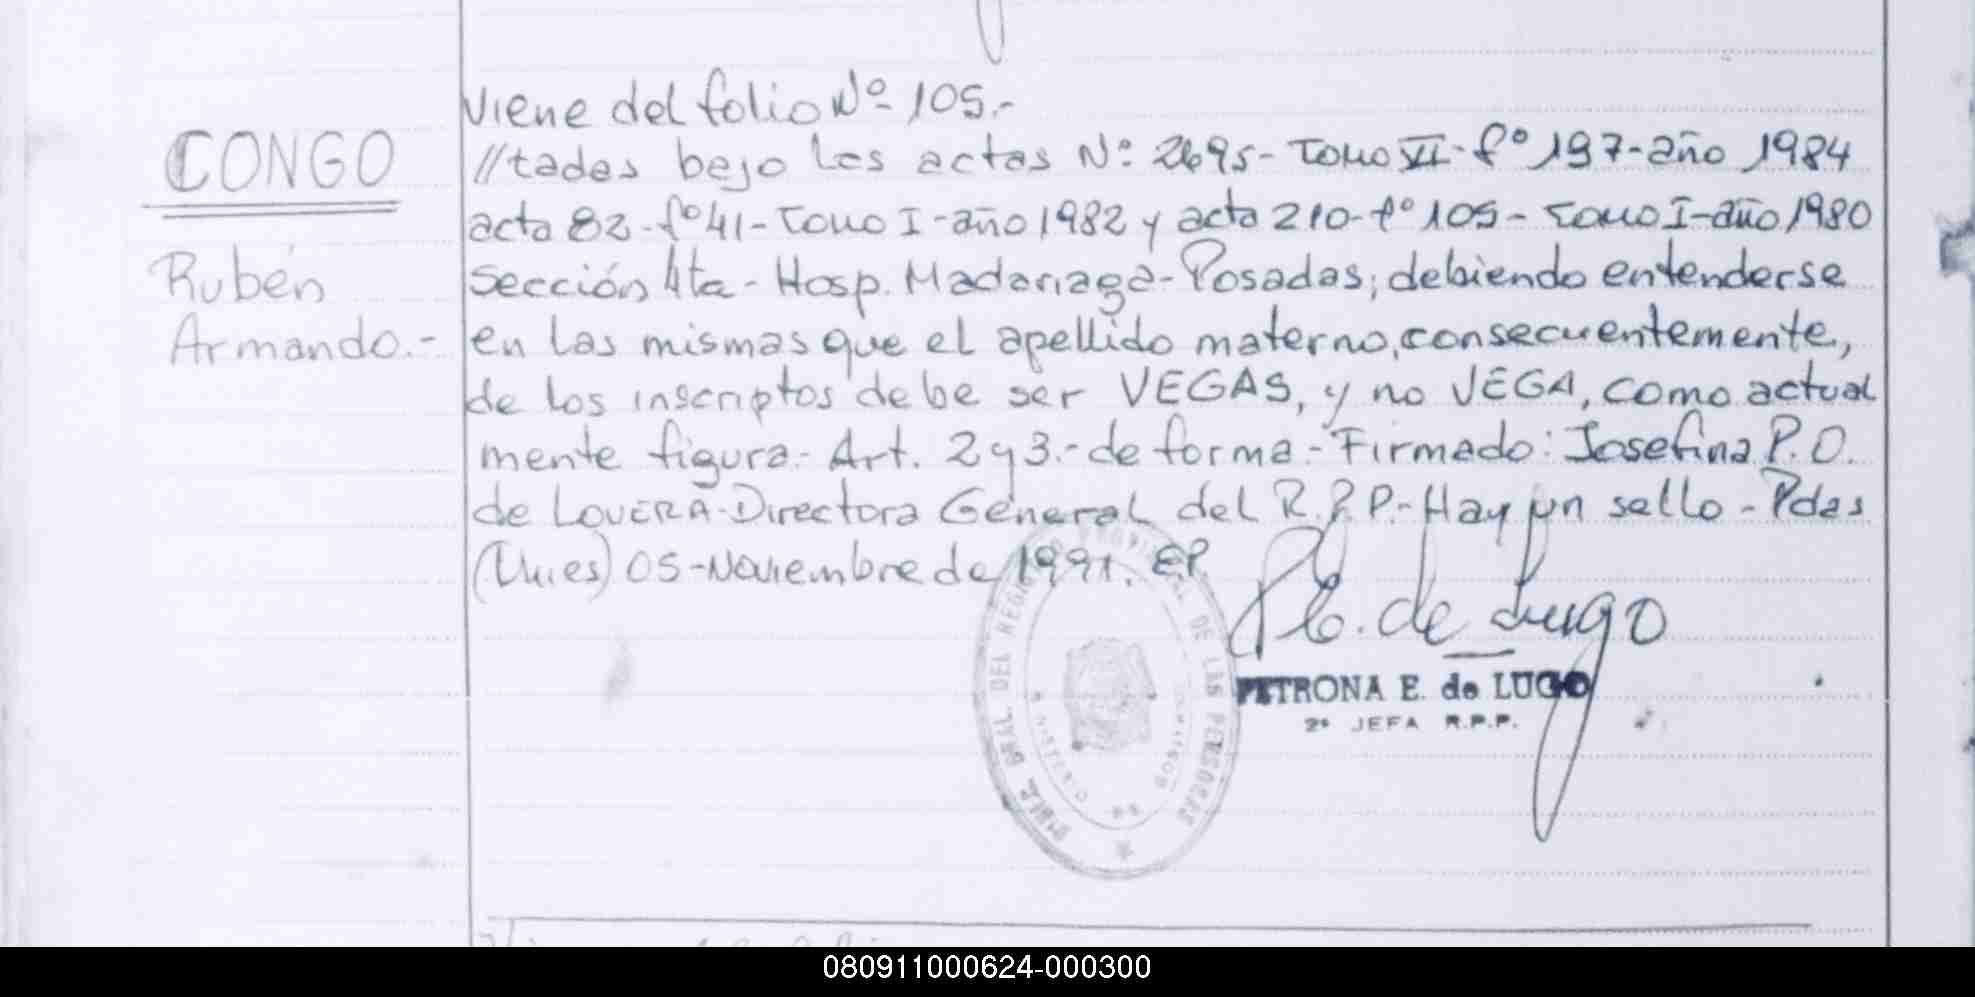 Viene del folio Nº 105.-
CONGO
//tadas bajo las actas Nº 2695- Tomo VI- fº 197- año 1984
acta 82- fº 41- Tomo I- año 1982 y acta 210- fº 105- Tomo I- año 1980
Rubén
Sección 4ta- Hosp. Madariaga- Posadas; debiendo entenderse
Armando.-
en las mismas que el apellido materno, consecuentemente,
de los inscriptos debe ser VEGAS, y no VEGA, como actual
mente figura.- Art. 2 y 3.- de forma.- Firmado: Josefina P. O.
de LOVERA- Directora General del R.P.P.- Hay un sello- Pdas
(Mnes) 05- Noviembre de 1991. E.P.
GRAL. DEL REGISTRO PROVINCIAL DE LAS PERSONAS
MINISTERIO
P. E. de Lugo
PETRONA E. de LUGO
2ª JEFA R.P.P.
080911000624-000300